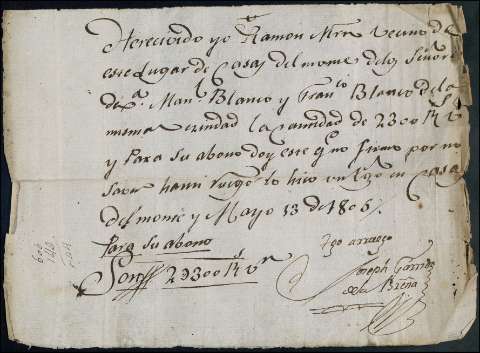 He recivido yo Ramon Mrn Vecino de
este Lugar de Casas del monte delos Señore
de Dn. Manl. Blanco y Franco. Blanco dela
misma vezindad la cantidad de 2300 Rs vn
y Para su abono doy este qe. no firmo por no
saver hami ruego lo hico un tgo. en Casas
del monte y Mayo 13 de 1805
Para su abono
Son 2300 Rs vn
Tgo arruego
Joseph Garrido
dela Breña